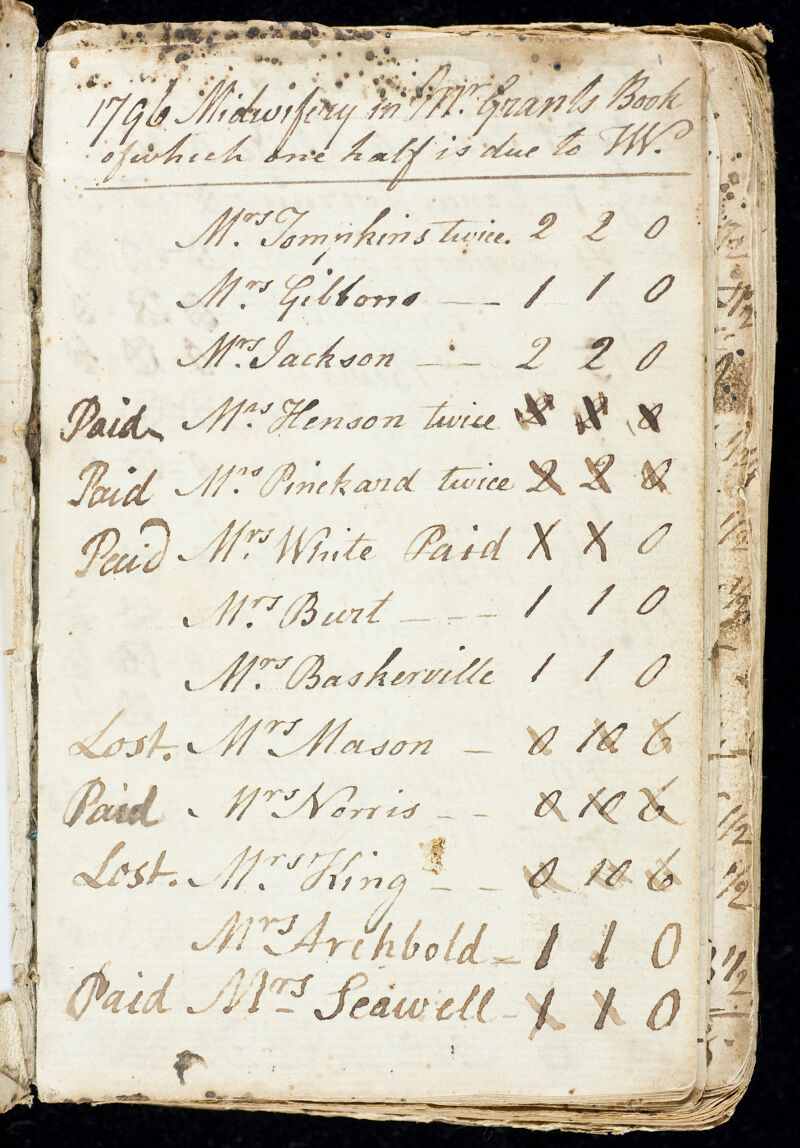 1796 Midwifery in Mr. Grants Book
of which one half is due to TW.
Mrs. Tompkins twice. 2 2 0
Mrs. Gibbons — 1 1 0
Mrs. Jackson — — 2 2 0
Paid Mrs. Henson twice
Paid Mrs. Pinckard twice 2 2 0
Paid Mrs. White Paid 0
Mrs. Burt - - - 1 1 0
Mrs. Baskerville 1 1 0
Lost. Mrs. Mason - 0 10 6
Paid Mrs. Norris - - 0 10 6
Lost. Mrs. King - - 0 10 6
Mrs Archbold - 1 1 0
Paid Mrs Seawell - 1 1 0